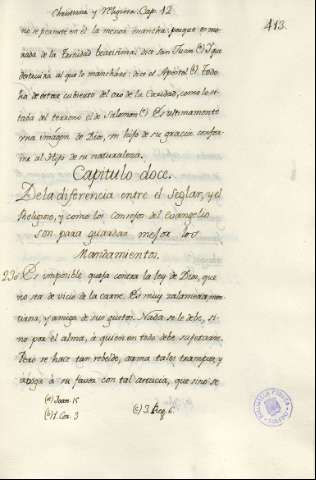 Christiana y Religiosa. Cap. 12.
413.
no se permite en él la menor mancha; porque es mo-
rada de la Trinidad beatisima, dice San Juan (a) Y que
destruirá al que lo manchare; dice el Apóstol (b). Todo
ha de estar cubierto del oro de la Caridad, como lo es-
taba del terreno el de Salomon (c) Es ultimamente
una imagen de Dios, un hijo de su gracia confor-
me al Hijo de su naturaleza.
Capitulo doce.
De la diferencia entre el Seglar, y el
Religioso, y como los Consejos del Evangelio
son para guardar mejor los
Mandamientos.
Es imposible queja contra la ley de Dios, que
no sea de vicio de la carne. Es muy zalamera,
y amiga de sus gustos. Nada se le debe, si
no por el alma, á quien en todo debe sujetarse.
Pero se hace tan rebelde, arma tales trampas, y
aboga á su favor con tal astucia, que sino se
(a) Joan. 15
(b) 1. Cor. 3
(c) 3. Reg. 6.
BIBLIOTECA PUBLICA
TOLEDO